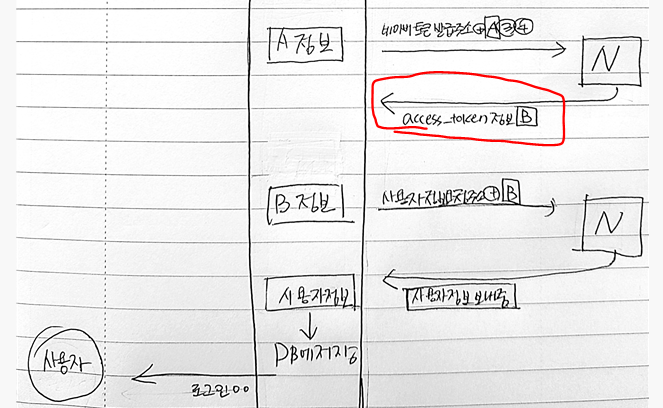 A 정보
네이버 토큰 발급주소+A ③④
N
access_token 정보 B
B 정보
+ B
N
사용자정보
사용자정보 보내줌
DB에 저장
사용자
로그인 OO